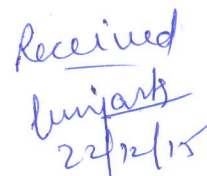 Received
22/12/15